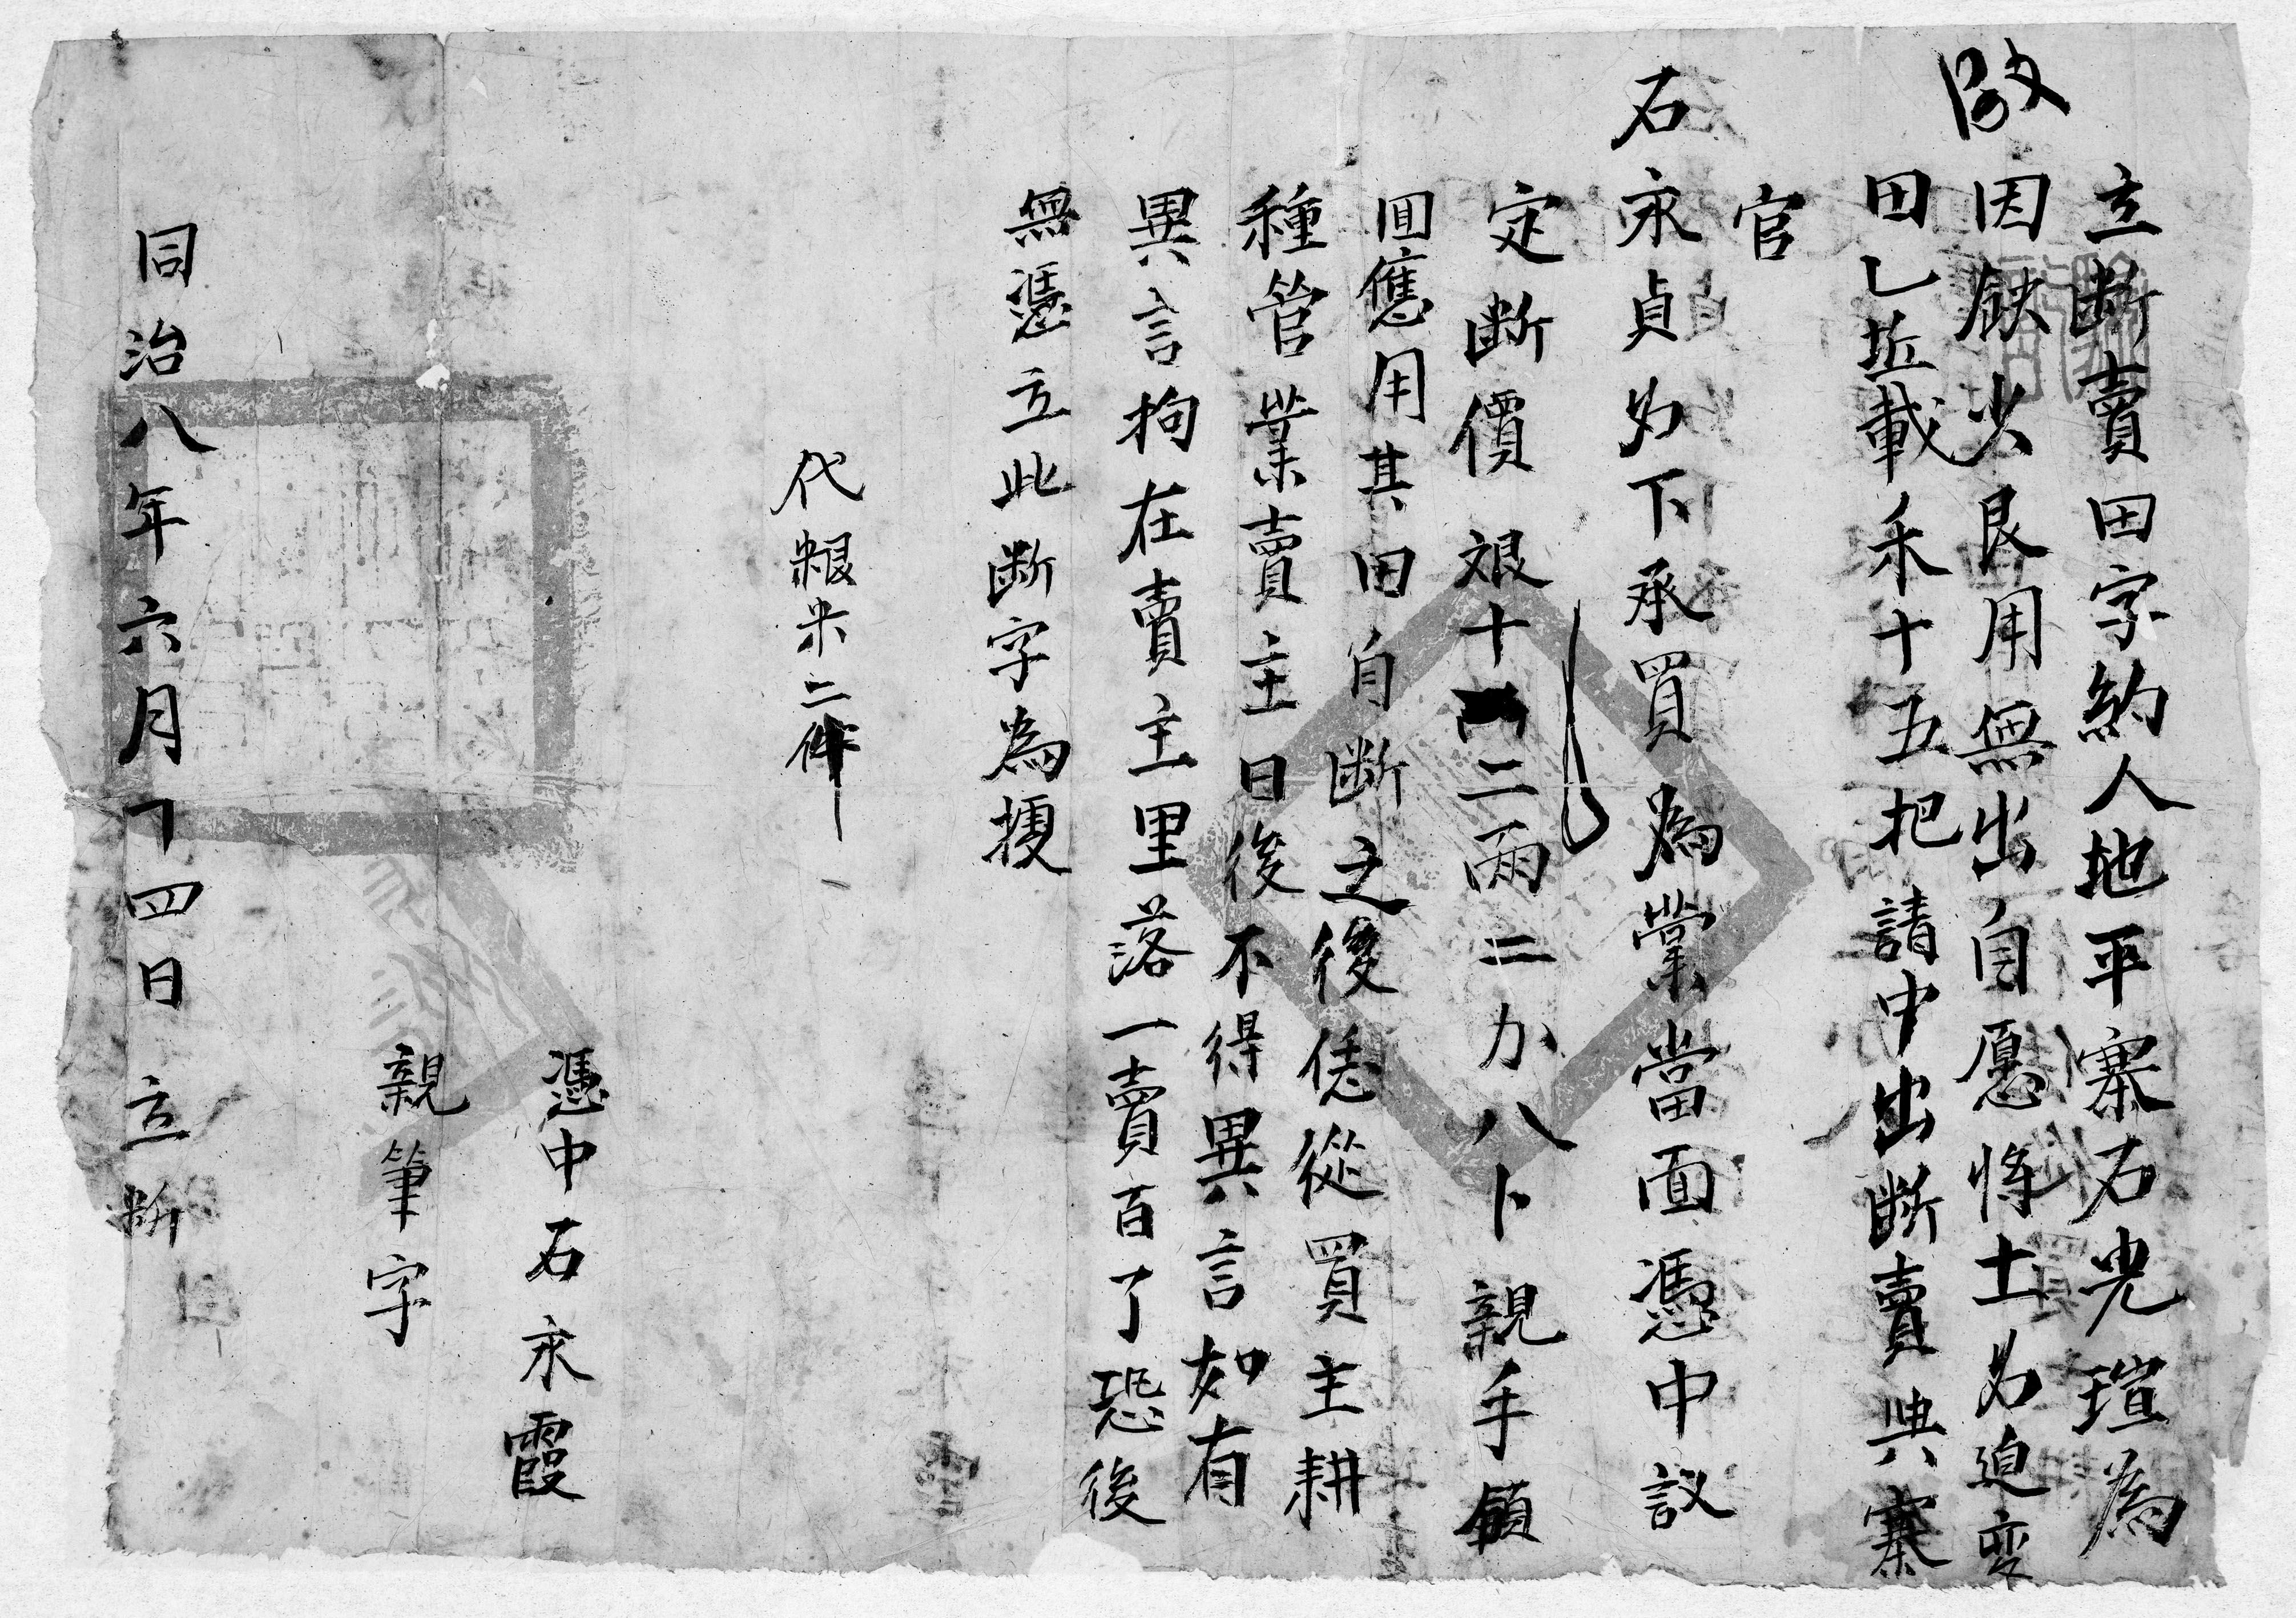 啟
立断賣田字約人地平寨石光瑄為
因缺少艮用無出自愿将土名迫变
田乚坵載禾十五把請中出断賣典寨
官
石永貞名下承買為業當面憑中議
定断價艰十二両二力八卜親手領
回應用其田自断之後恁從買主耕
種管業賣主日後不得異言如有
異言拘在賣主里落一賣百了恐後
無憑立此断字為㨿
代粮米二件
憑中石永霞
親筆字
同治八年六月十四日立断